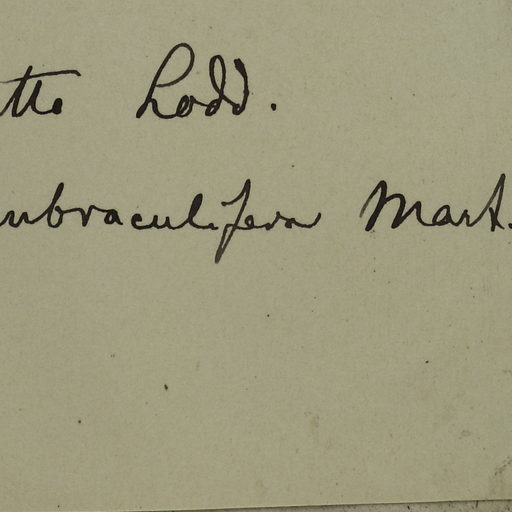 tto Lodd.
umbraculifera Mart.